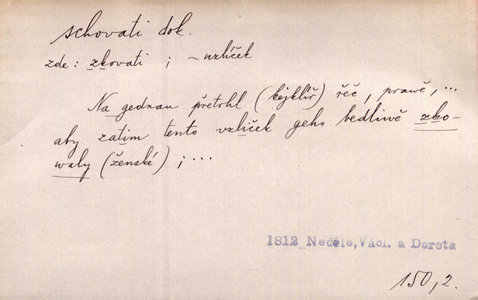 schovati dok.
zde: zkovati ; - uzlíček
Na gednau přetrhl (kejklíř) řeč, prawě, ...
aby zatim tento vzlíček geho bedliwě zko-
waly (ženské) ; ...
1812 Neděle, Václ. a Dorota
150, 2.